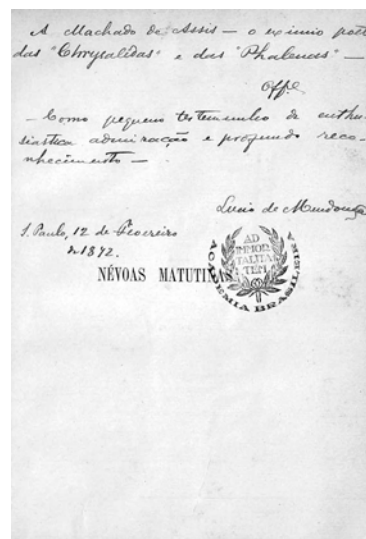 A Machado de Assis — o eximio poeta
das "Chrysalidas" e das "Phalenas" —
Off.e
— Como pequeno testemunho de enthu-
siastica admiração e profundo reco-
nhecimento —
Lucio de Mendonça
S. Paulo, 12 de Fevereiro
de 1872.
NÉVOAS MATUTINAS
AD
IMMOR
TALITA
TEM
ACADEMIA BRASILEIRA